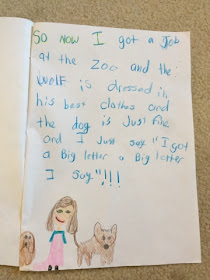 SO NOW I got a Job
at the Zoo and the
wolf is dressed in
his best clothes and
the dog is Just fine
and I Just say "I got
a Big letter a Big letter
I say"!!!